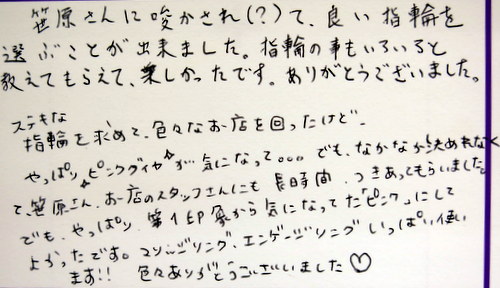 笹原さんに唆かされ(?)て、良い指輪を
選ぶことが出来ました。指輪の事もいろいろと
教えてもらえて、楽しかったです。ありがとうございました。
ステキな
指輪を求めて、色々なお店を回ったけど、
やっぱり☆ピンクダイヤ☆が気になって。。。でも、なかなか決めれなく
て、笹原さん、お店のスタッフさんにも長時間、つきあってもらいました。
でも、やっぱり、第1印象から気になってた「ピンク」にして
よかったです。マリッジリング、エンゲージリングいっぱい使い
ます!! 色々ありがとうございました♡